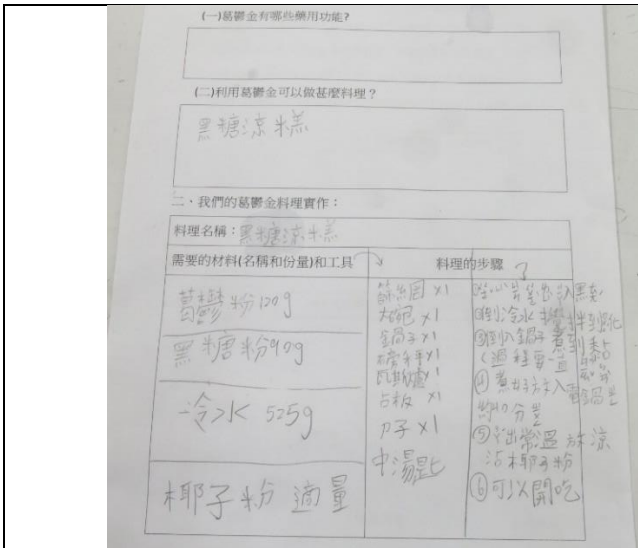 (一)葛鬱金有哪些藥用功能?
(二)利用葛鬱金可以做甚麼料理？
黑糖涼糕
二、我們的葛鬱金料理實作：
料理名稱：黑糖涼糕
需要的材料(名稱和份量)和工具
葛鬱粉120g
黑糖粉90g
冷水 525g
椰子粉 適量
篩網 x1
大碗 x1
鍋子 x1
x1
瓦斯爐 x1
占板 x1
刀子 x1
中湯匙
料理的步驟
②倒冷水
③倒入鍋子煮到黏
(過程要一直
④煮好放入電鍋蒸
約10分
⑤放涼
沾椰子粉
⑥可以開吃